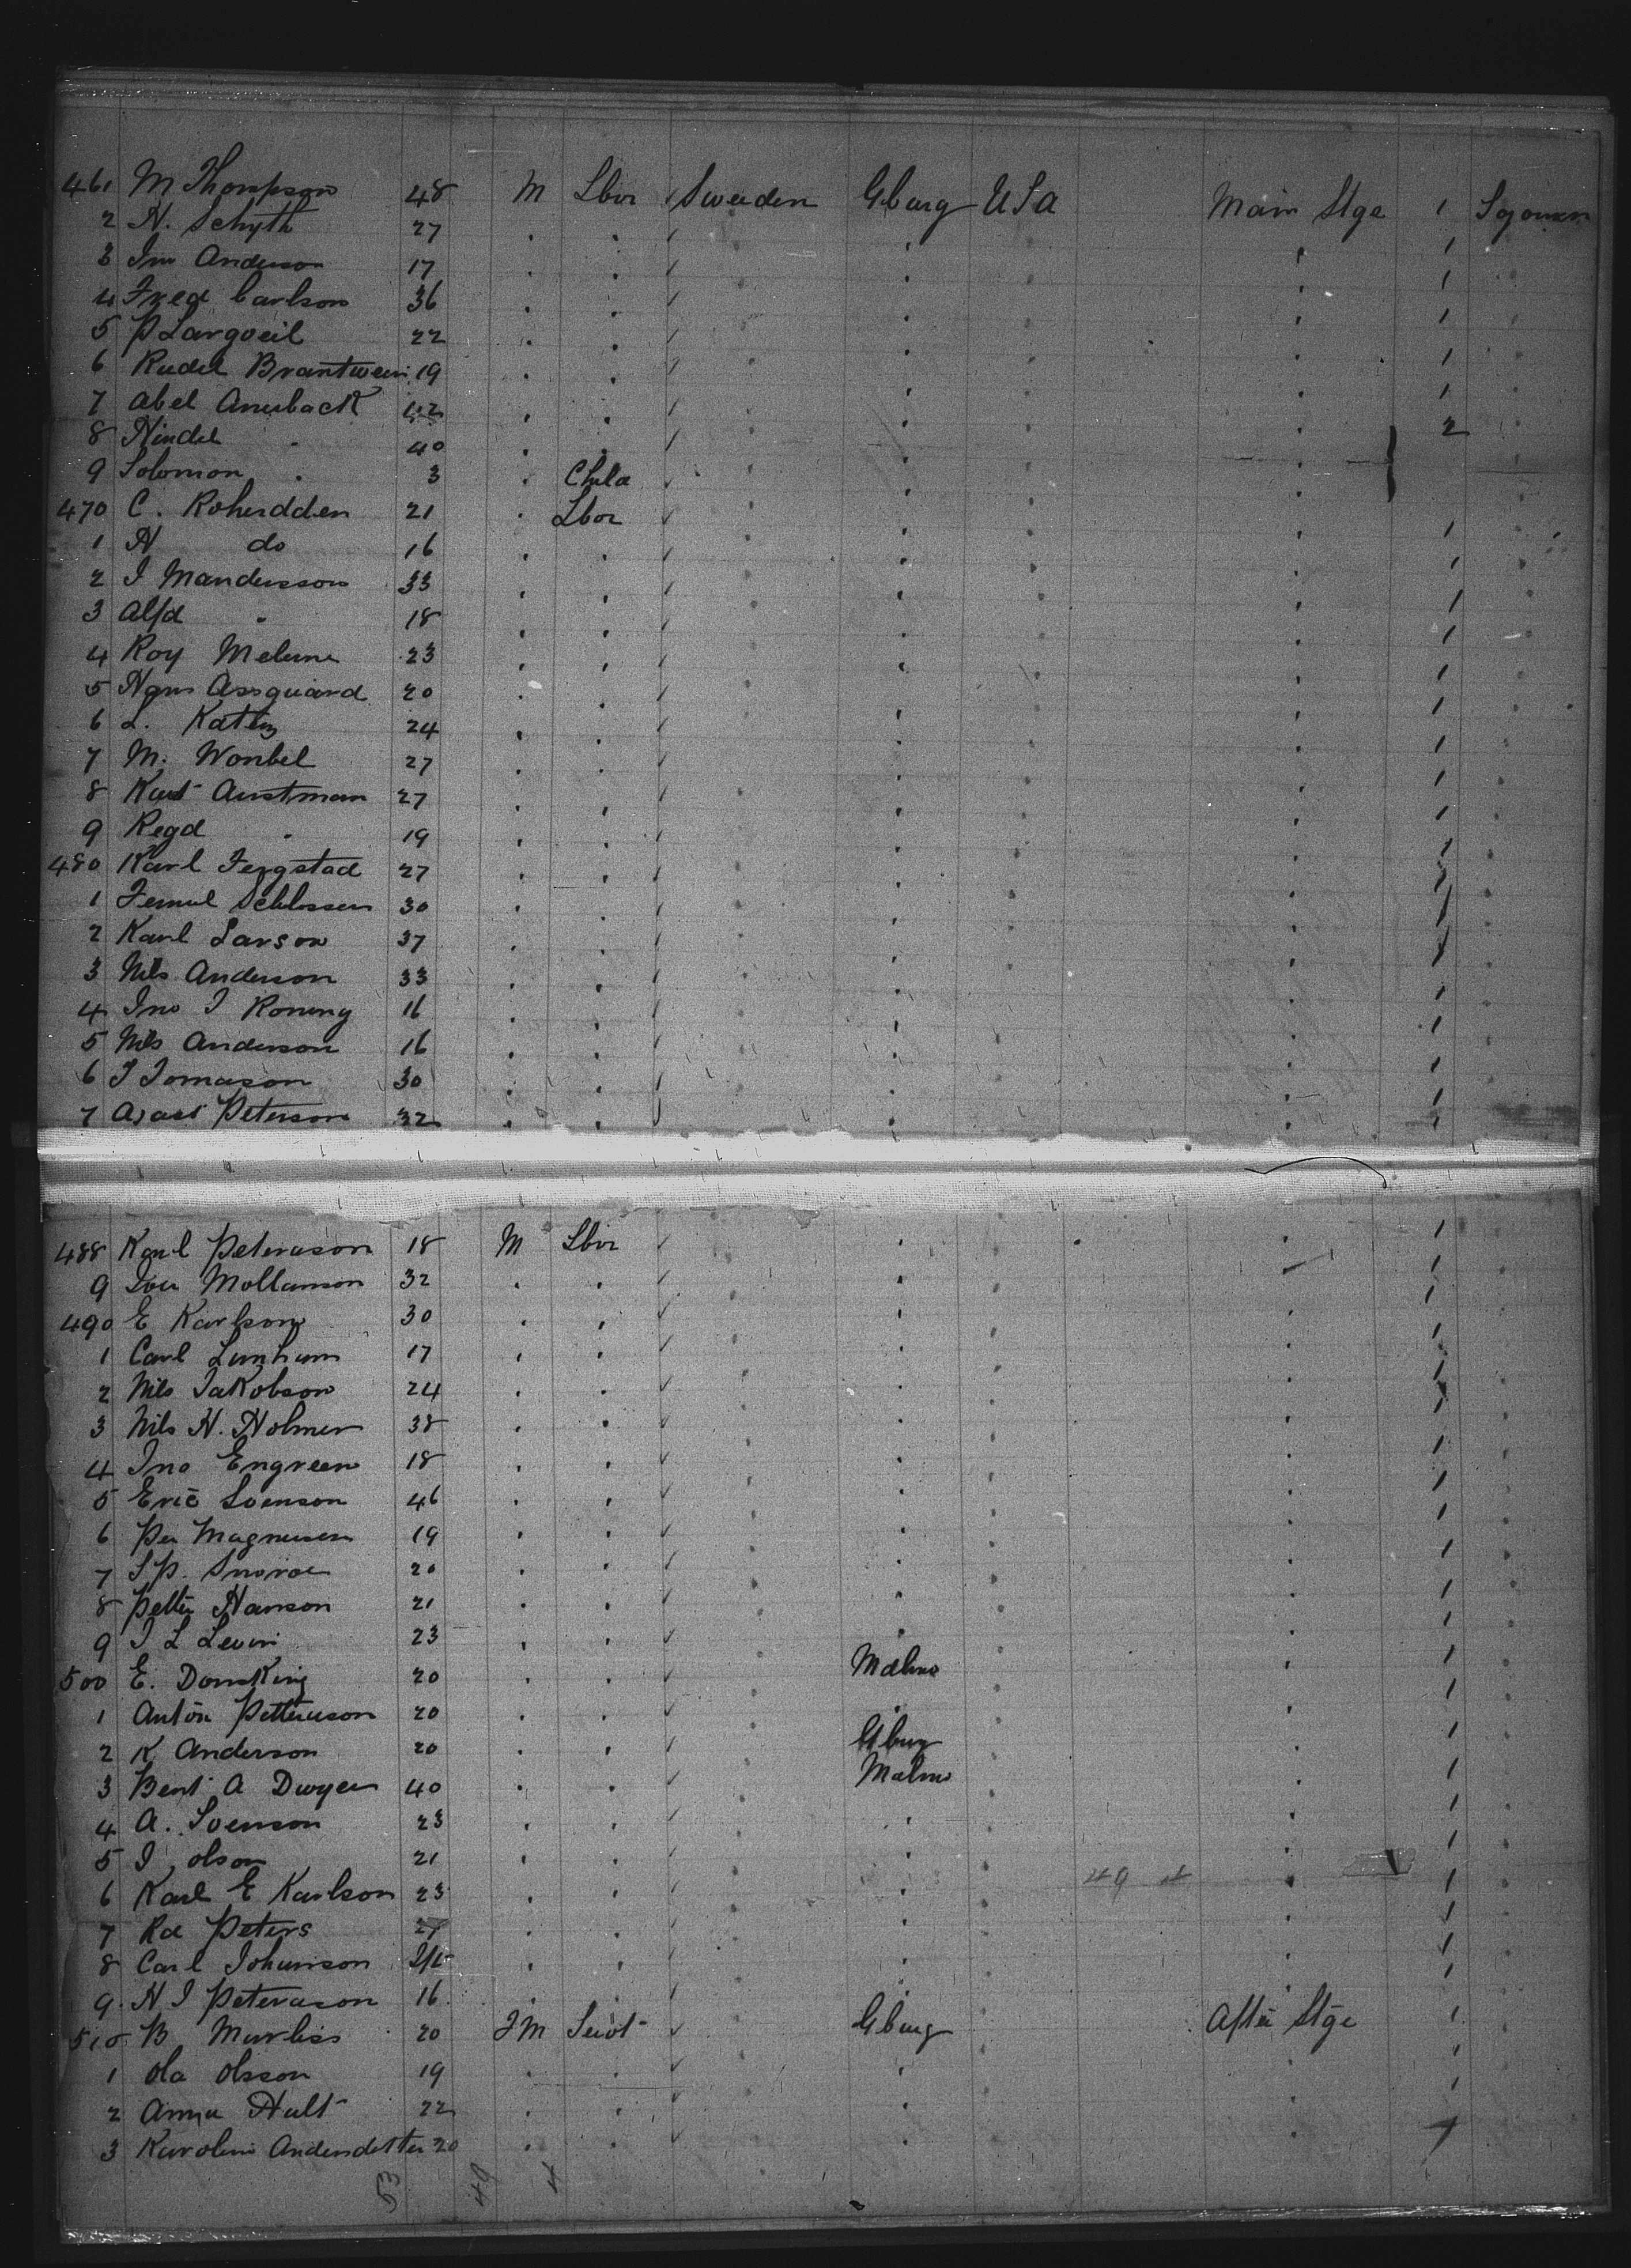 461 M Thompson 48 M Lbor Sweeden Gburg USA Main Stge 1 Sojourn
2 N. Schyth 27 1
3 Jno Anderson 17 1
4 Fred Carlson 36 1
5 P Largoeil 22 1
6 Rudel Brantwein 19 1
7 Abel Anerback 42 2
8 Hindel " 40
9 Solomon " 3 Child
470 C. Roherdden 21 Lbor 1
1 N do 16 1
2 J Mandersson 33 1
3 Alfd " 18 1
4 Roy 23 1
5 Hans Assquard 20 1
6 L. 24 1
7 M. Wonbel 27 1
8 Kurt Austman 27 1
9 Regd " 19 1
480 Karl Fergstad 27 1
1 Schlossen 30 1
2 Karl Larson 37 1
3 Nils Anderson 33 1
4 Jno J Roneny 16 1
5 Nils Anderson 16 1
6 J Tomason 30 1
7 Peterson 32 1
488 Karl Peterason 18 M Lbor 1
9 Mollamson 32 1
490 E Karlson 30 1
1 Carl 17 1
2 Nils Jakobson 24 1
3 Nils H. Holmer 38 1
4 Jno Engreen 18 1
5 Eric Svenson 46 1
6 Per Magnusen 19 1
7 S P. 20 1
8 Petter Hanson 21 1
9 J L Levin 23 1
500 E. Domsking 20 Malmo 1
1 Anton Petterson 20 1
2 K Anderson 20 Gburg 1
3 Bent A Dwyer 40 Malmo 1
4 A. Svenson 23 1
5 J Olson 21 1
6 Karl E Karlson 23 49 4 1
7 Rd Peters 27 1
8 Carl Johanson 1
9 H J Peterason 16 1
510 B Marliss 20 FM Servt Gburg After Stge 1
1 Ola Olsson 19 1
2 Anna Hult 22 1
3 Karolin Andersdotter 20 1
53 49 4